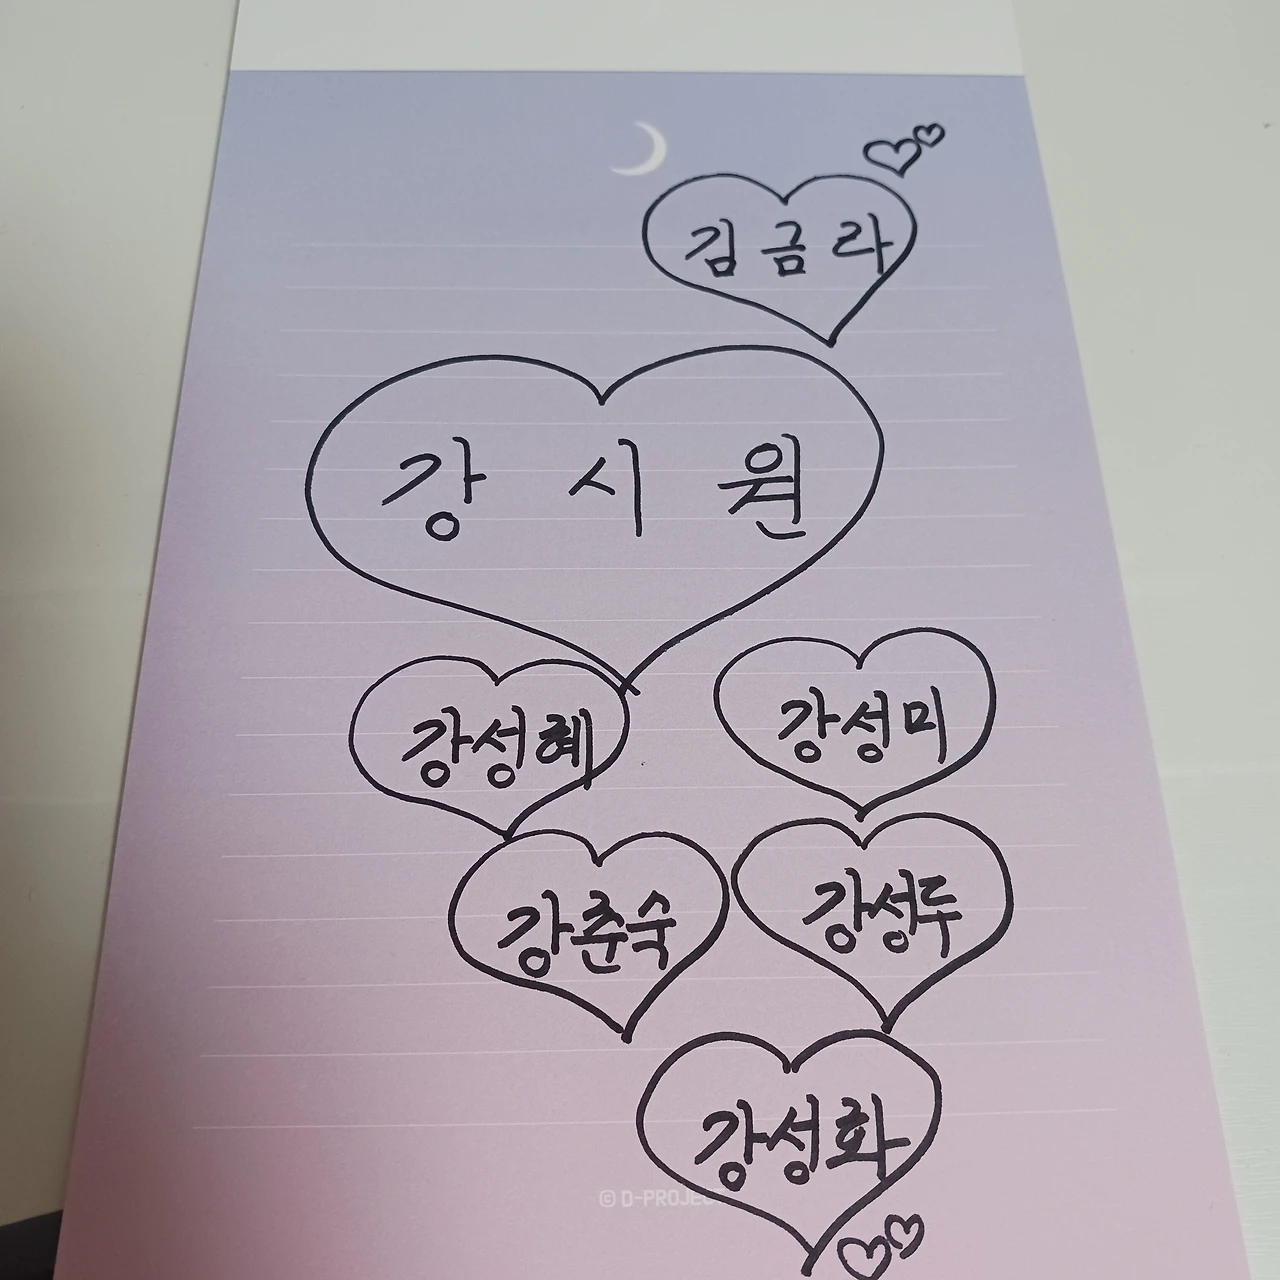 김금라
강시원
강성혜 강성미
강춘숙 강성두
강성화
© D-PROJECT